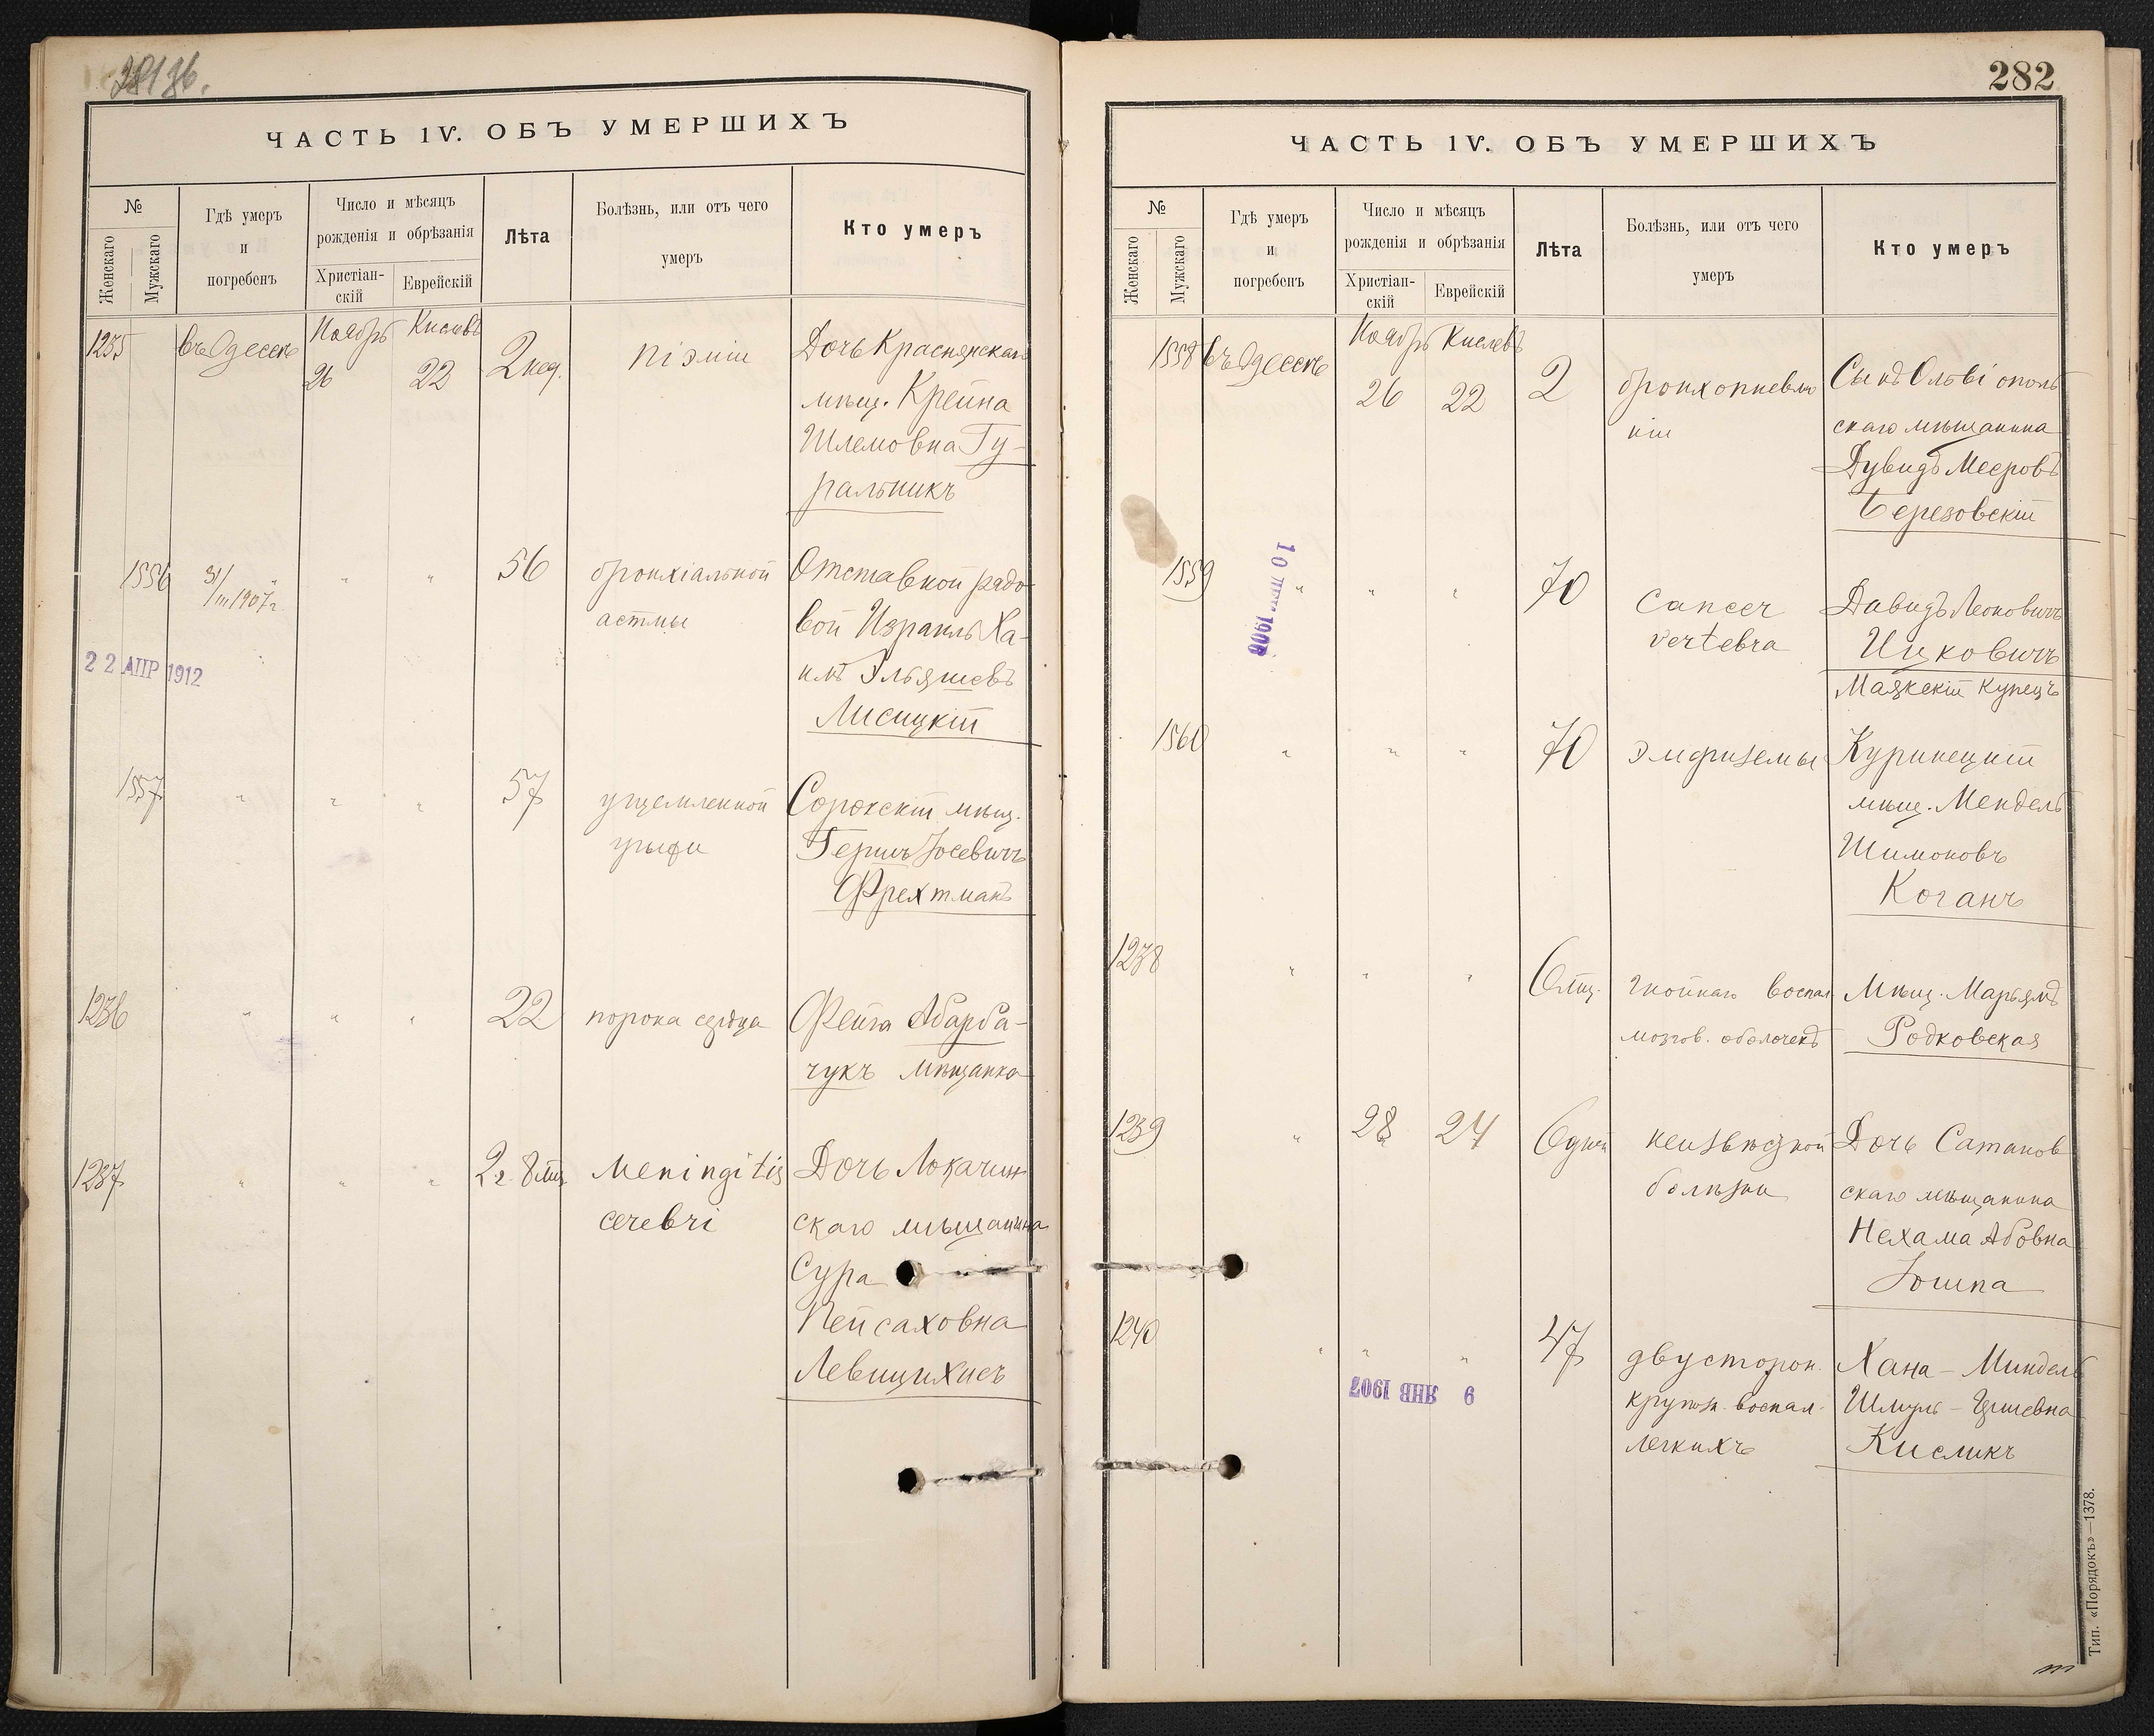 ЧАСТЬ IV. ОБЪ УМЕРШИХЪ
№
Женскаго
Мужскаго
Гдѣ умеръ
и
погребенъ
Число и мѣсяцъ
рожденія и обрѣзанія
Христіан-
скій
Еврейскій
Лѣта
Болѣзнь, или отъ чего
умеръ
Кто умеръ
1235
въ Одессѣ
Ноябрь
26
Кислевъ
22
2 нед.
піэміи
Дочь Красноярскаго
мѣщ. Крейна
Шлемовна Гу-
ральникъ
1556
31/III 1907 г.
"
"
56
бронхіальной
астмы
Отставной рядо-
вой Израиль Ха-
имъ Эльяшевъ
Лисицкій
22 АПР 1912
1557
"
"
"
57
ущемленной
грыжи
Сорокскій мѣщ.
Гершъ Іосевичъ
Фрехтманъ
1236
"
"
"
22
порока сердца
Фейга Абарба-
чукъ мѣщанка
1237
"
"
"
2 г. 8 мѣс.
Meningitis
cerebri
Дочь Локачин
скаго мѣщанина
Сура
Пейсаховна
282
ЧАСТЬ IV. ОБЪ УМЕРШИХЪ
№
Женскаго
Мужскаго
Гдѣ умеръ
и
погребенъ
Число и мѣсяцъ
рожденія и обрѣзанія
Христіан-
скій
Еврейскій
Лѣта
Болѣзнь, или отъ чего
умеръ
Кто умеръ
1558
въ Одессѣ
Ноябрь
26
Кислевъ
22
2
бронхопневмо
ніи
Сынъ Ольвіополь
скаго мѣщанина
Дувидъ Мееровъ
Березовскій
1559
"
"
"
70
Cancer
vertebra
Давидъ Леоновичъ
Ицковичъ
Маякскій купецъ
1560
"
"
"
70
эмфиземы
мѣщ. Мендель
Шимоновъ
Коганъ
1238
"
"
"
6 мѣс.
гнойнаго воспал.
мозгов. оболочекъ
Мѣщ. Марьямъ
Родковская
1239
"
28
24
неизвѣстной
болѣзни
Дочь Сатанов
скаго мѣщанина
Нехама Абовна
1240
"
"
"
47
9 ЯНВ 1907
двусторон.
крупозн. воспал.
легкихъ
Хана-Миндель
Кисликъ
Тип. «Порядокъ»—1378.